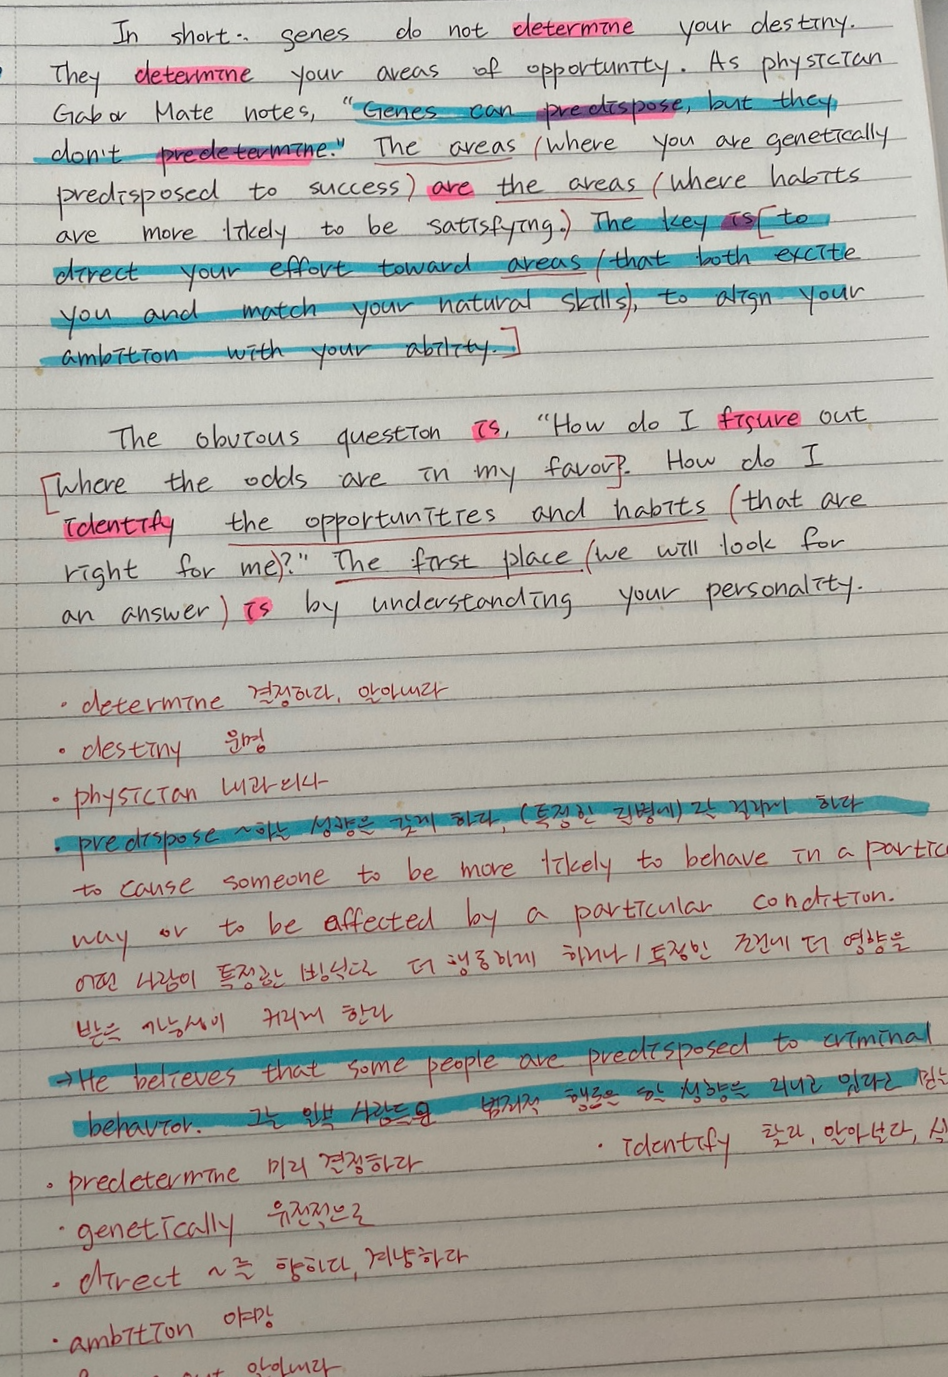 In short.. genes do not determine your destiny.
They determine your areas of opportunity. As physician
Gabor Mate notes, "Genes can predispose, but they
don't predetermine." The areas (where you are genetically
predisposed to success) are the areas (where habits
are more likely to be satisfying.) The key is [to
direct your effort toward areas (that both excite
you and match your natural skills), to align your
ambition with your ability.]
The obvious question is, "How do I figure out
[where the odds are in my favor]? How do I
identify the opportunities and habits (that are
right for me)?" The first place (we will look for
an answer) is by understanding your personality.
· determine 결정하다, 알아내다
· destiny 운명
· physician 내과의사
· predispose ~하는 성향을 갖게 하다, (특정한 질병에) 잘 걸리게 하다
to cause someone to be more likely to behave in a partic
way or to be affected by a particular condition.
어떤 사람이 특정한 방식으로 더 행동하게 하거나 / 특정한 조건에 더 영향을
받을 가능성이 커지게 한다
→ He believes that some people are predisposed to criminal
behavior. 그는 일부 사람들은 범죄적 행동을 할 성향을 지니고 있다고 믿는
· identify 찾다, 알아보다,
· predetermine 미리 결정하다
· genetically 유전적으로
· direct ~를 향하다, 겨냥하다
· ambition 야망
알아내다